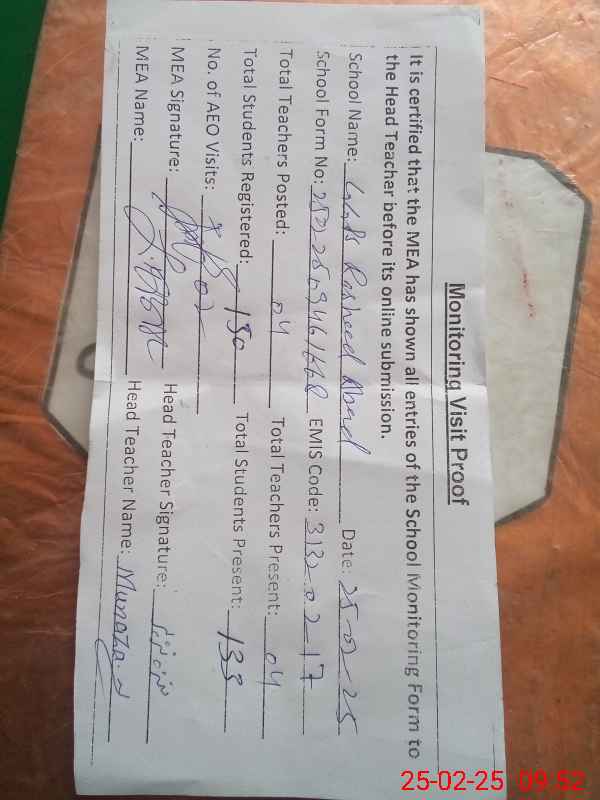 Monitoring Visit Proof
It is certified that the MEA has shown all entries of the School Monitoring Form to
the Head Teacher before its online submission.
School Name: Rasheed Abad Date: 25-02-25
School Form No: EMIS Code: 313-02-17
Total Teachers Posted: 04 Total Teachers Present: 04
Total Students Registered: 150 Total Students Present: 133
No. of AEO Visits: 02
MEA Signature: Head Teacher Signature:
MEA Name: Head Teacher Name:
25-02-25 09:52